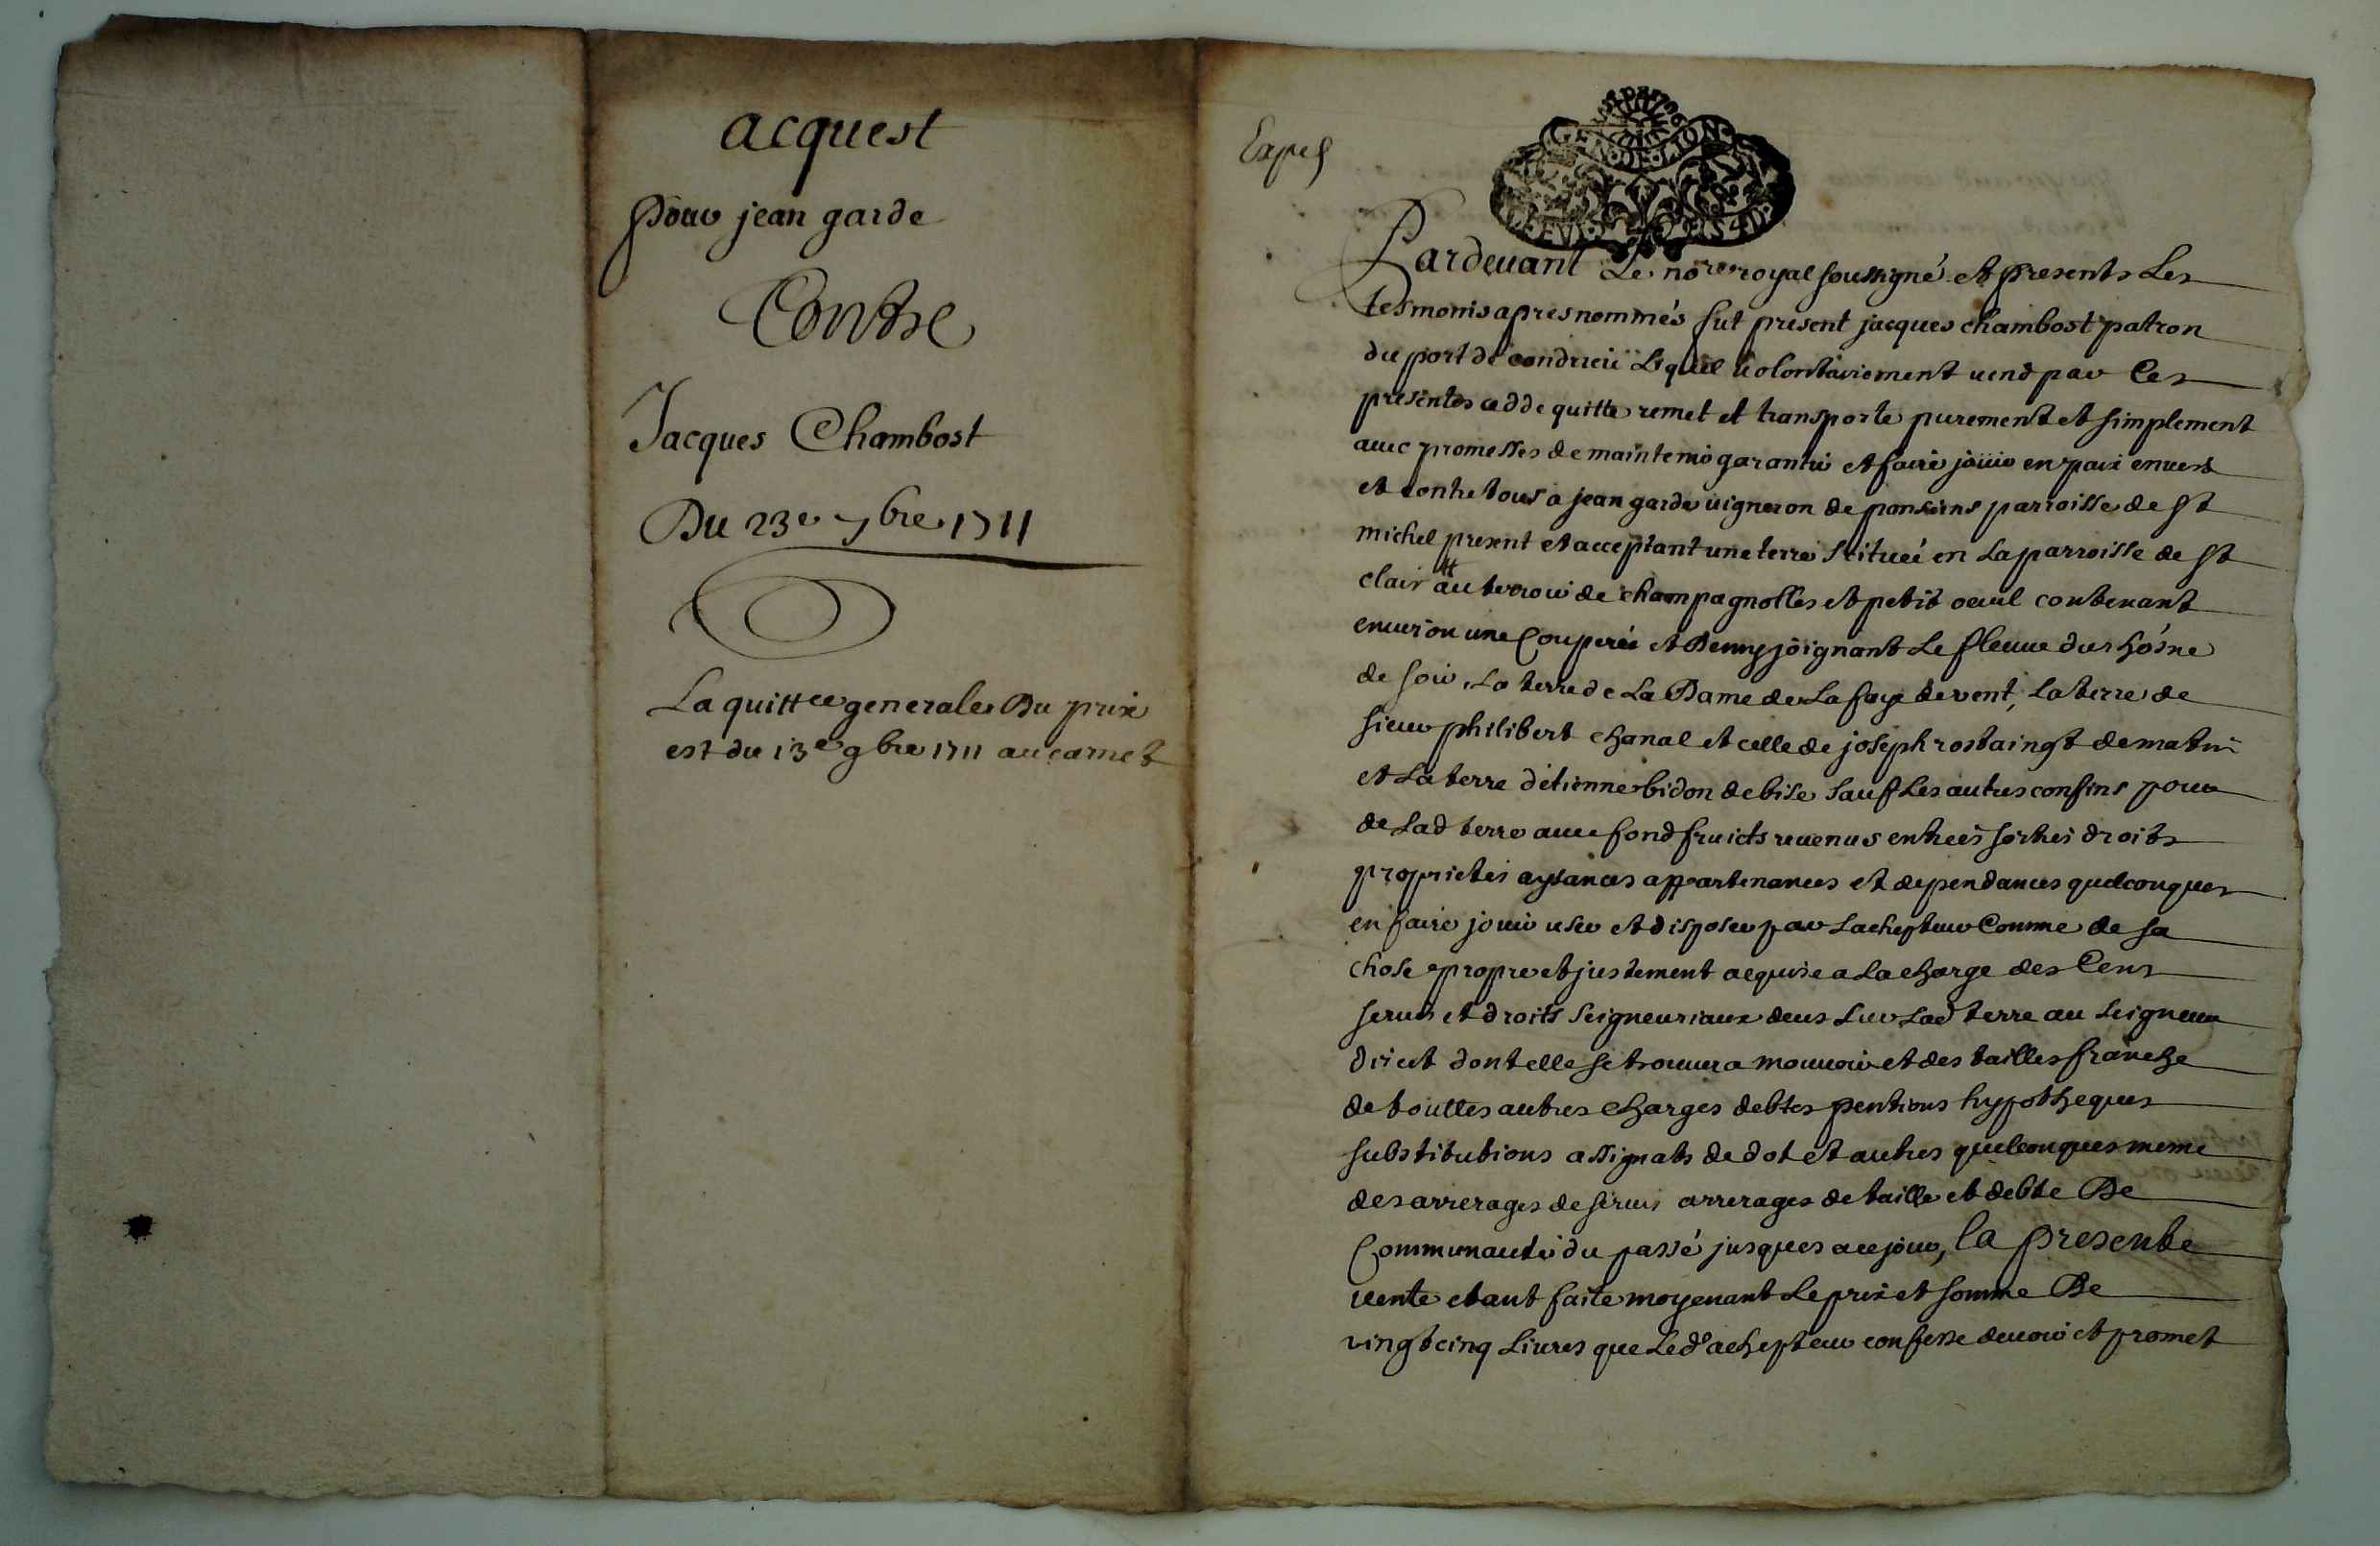 acquest
pour jean garde
Contre
Jacques Chambost
Du 23e 7bre 1711
La quittce generale Du prix
est du 13e 9bre 1711 au carnet
Pardeuant Le nore royal soussigné et presents Les
tesmoins apres nommés fut present jacques chambost patron
du port de condrieu Lequel uolontairement uend par Ces
presentes cedde quitte remet et transporte purement et simplement
auec promesses de maintenir garantir et faire joüir en paix enuers
et contre tous a jean garde uigneron de ponsins parroisse de st
michel present et acceptant une terre scituée en La parroisse de st
clair au terroir de champagnolles et petit oeuil contenant
enuiron une Couperée et Demy joignant Le fleuue du rhosne
de soir, La terre de La Dame de La faye de vent, La terre de
sieur philibert chanal et celle de joseph rostaingt de matin
et La terre d'etienne bidon de bise sauf Les autres confins pour
de Lad terre auec fond fruicts reuenus entrées sorties droits
proprietés aysances appartenances et dependances quelconques
en faire jouir user et disposer par Lachepteur Comme de sa
chose propre et justement acquise a La charge des Cens
seruis et droits seigneuriaux deus sur Lad terre au seigneur
direct dont elle se trouuera mouuoir et des tailles franche
de touttes autres charges debtes pentions hypotheques
substitutions assignats de dot et autres quelconques meme
des arrerages de seruis arrerages de taille et debte De
Communauté du passé jusques a ce jour, la presente
uente etant faite moyenant Le prix et somme De
vingt cinq Liures que Led achepteur confesse deuoir et promet